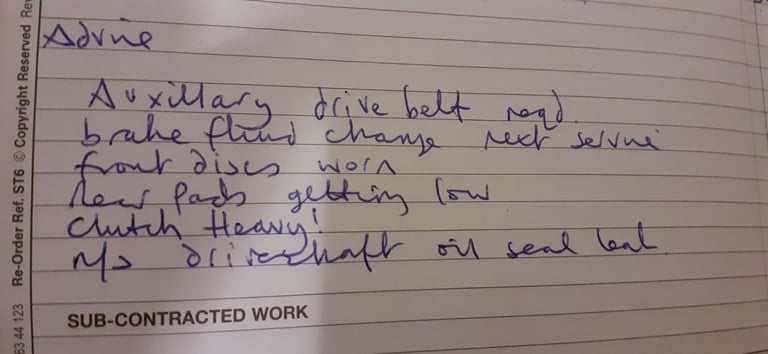 Advise
Auxillary drive belt reqd.
brake fluid change next service
front discs worn
Rear Pads getting low
Clutch Heavy!
N/S driveshaft oil seal leak
SUB-CONTRACTED WORK
63 44 123 Re-Order Ref. ST6 © Copyright Reserved Rev